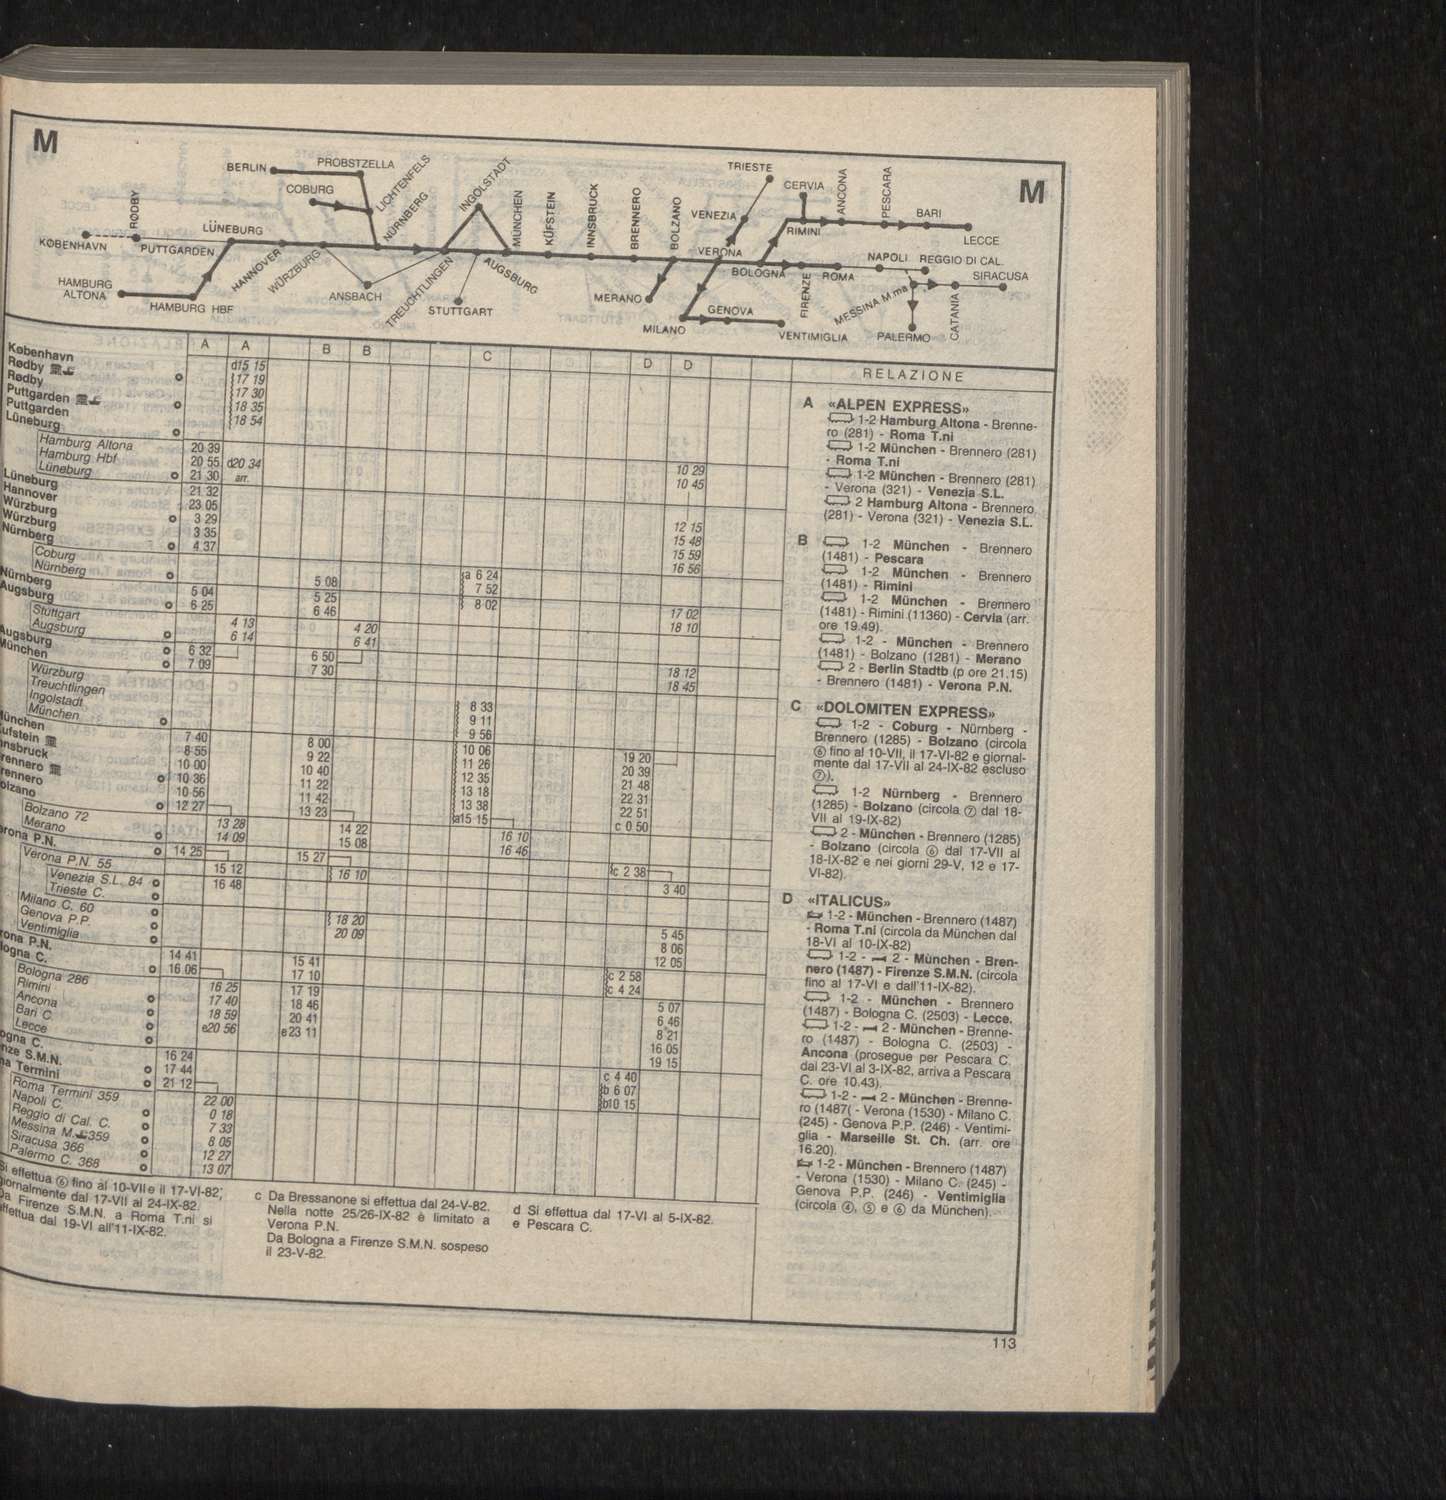 M
M
BERLIN
PROBSTZELLA
COBURG
LICHTENFELS
NÜRNBERG
INGOLSTADT
MÜNCHEN
KÜFSTEIN
INNSBRUCK
BRENNERO
BOLZANO
TRIESTE
VENEZIA
VERONA
CERVIA
ANCONA
PESCARA
BARI
LECCE
RIMINI
BOLOGNA
FIRENZE
ROMA
NAPOLI
REGGIO DI CAL.
SIRACUSA
MESSINA M.ma
CATANIA
PALERMO
KØBENHAVN
RØDBY
PUTTGARDEN
LÜNEBURG
HAMBURG
ALTONA
HAMBURG HBF
HANNOVER
WÜRZBURG
ANSBACH
TREUCHTLINGEN
AUGSBURG
STUTTGART
MERANO
MILANO
GENOVA
VENTIMIGLIA
A A B B C D D
København d15 15
Rødby 17 19
Rødby 17 30
Puttgarden 18 35
Puttgarden 18 54
Lüneburg
Hamburg Altona 20 39
Hamburg Hbf 20 55 d20 34 10 29
Lüneburg 21 30 arr. 10 45
Lüneburg 21 32
Hannover 23 05 12 15
Würzburg 3 29 15 48
Würzburg 3 35 15 59
Nürnberg 4 37 16 56
Coburg a 6 24
Nürnberg 5 08 7 52
Nürnberg 5 04 5 25 8 02 17 02
Augsburg 6 25 6 46 18 10
Stuttgart 4 13 4 20
Augsburg 6 14 6 41
Augsburg 6 32 6 50 18 12
München 7 09 7 30 18 45
Würzburg
Treuchtlingen 8 33
Ingolstadt 9 11
München 9 56
ünchen 7 40 8 00 10 06 19 20
ufstein 8 55 9 22 11 26 20 39
nnsbruck 10 00 10 40 12 35 21 48
rennero 10 36 11 22 13 18 22 31
rennero 10 56 11 42 13 38 22 51
olzano 12 27 13 23 a15 15 c 0 50
Bolzano 72 13 28 14 22 16 10
Merano 14 09 15 08 16 46
rona P.N. 14 25 15 27 c 2 38
Verona P.N. 55 15 12 16 10 3 40
Venezia S.L. 84 16 48
Trieste C.
Milano C. 60 18 20 5 45
Genova P.P. 20 09 8 06
Ventimiglia 12 05
rona P.N. 14 41 15 41 c 2 58
logna C. 16 06 17 10 c 4 24
Bologna 286 16 25 17 19 5 07
Rimini 17 40 18 46 6 46
Ancona 18 59 20 41 8 21
Bari C. e20 56 e23 11 16 05
Lecce 19 15
ogna C. 16 24 c 4 40
nze S.M.N. 17 44 b 6 07
ma Termini 21 12 b10 15
Roma Termini 359 22 00
Napoli C. 0 18
Reggio di Cal. C. 7 33
Messina M. 359 8 05
Siracusa 366 12 27
Palermo C. 368 13 07
Si effettua ⑥ fino al 10-VII e il 17-VI-82;
giornalmente dal 17-VII al 24-IX-82.
Da Firenze S.M.N. a Roma T.ni si
effettua dal 19-VI all'11-IX-82.
c Da Bressanone si effettua dal 24-V-82.
Nella notte 25/26-IX-82 è limitato a
Verona P.N.
Da Bologna a Firenze S.M.N. sospeso
il 23-V-82.
d Si effettua dal 17-VI al 5-IX-82.
e Pescara C.
RELAZIONE
A «ALPEN EXPRESS»
1-2 Hamburg Altona - Brenne-
ro (281) - Roma T.ni
1-2 München - Brennero (281)
- Roma T.ni
1-2 München - Brennero (281)
- Verona (321) - Venezia S.L.
2 Hamburg Altona - Brennero
(281) - Verona (321) - Venezia S.L.
B 1-2 München - Brennero
(1481) - Pescara
1-2 München - Brennero
(1481) - Rimini
1-2 München - Brennero
(1481) - Rimini (11360) - Cervia (arr.
ore 19.49).
1-2 - München - Brennero
(1481) - Bolzano (1281) - Merano
2 - Berlin Stadtb (p ore 21.15)
- Brennero (1481) - Verona P.N.
C «DOLOMITEN EXPRESS»
1-2 - Coburg - Nürnberg -
Brennero (1285) - Bolzano (circola
⑥ fino al 10-VII, il 17-VI-82 e giornal-
mente dal 17-VII al 24-IX-82 escluso
⑦).
1-2 Nürnberg - Brennero
(1285) - Bolzano (circola ⑦ dal 18-
VII al 19-IX-82)
2 - München - Brennero (1285)
- Bolzano (circola ⑥ dal 17-VII al
18-IX-82 e nei giorni 29-V, 12 e 17-
VI-82).
D «ITALICUS»
1-2 - München - Brennero (1487)
- Roma T.ni (circola da München dal
18-VI al 10-IX-82)
1-2 - 2 - München - Bren-
nero (1487) - Firenze S.M.N. (circola
fino al 17-VI e dall'11-IX-82).
1-2 - München - Brennero
(1487) - Bologna C. (2503) - Lecce.
1-2 - 2 - München - Brenne-
ro (1487) - Bologna C. (2503) -
Ancona (prosegue per Pescara C.
dal 23-VI al 3-IX-82, arriva a Pescara
C. ore 10.43).
1-2 - 2 - München - Brenne-
ro (1487( - Verona (1530) - Milano C.
(245) - Genova P.P. (246) - Ventimi-
glia - Marseille St. Ch. (arr. ore
16.20).
1-2 - München - Brennero (1487)
- Verona (1530) - Milano C. (245) -
Genova P.P. (246) - Ventimiglia
(circola ④, ⑤ e ⑥ da München).
113